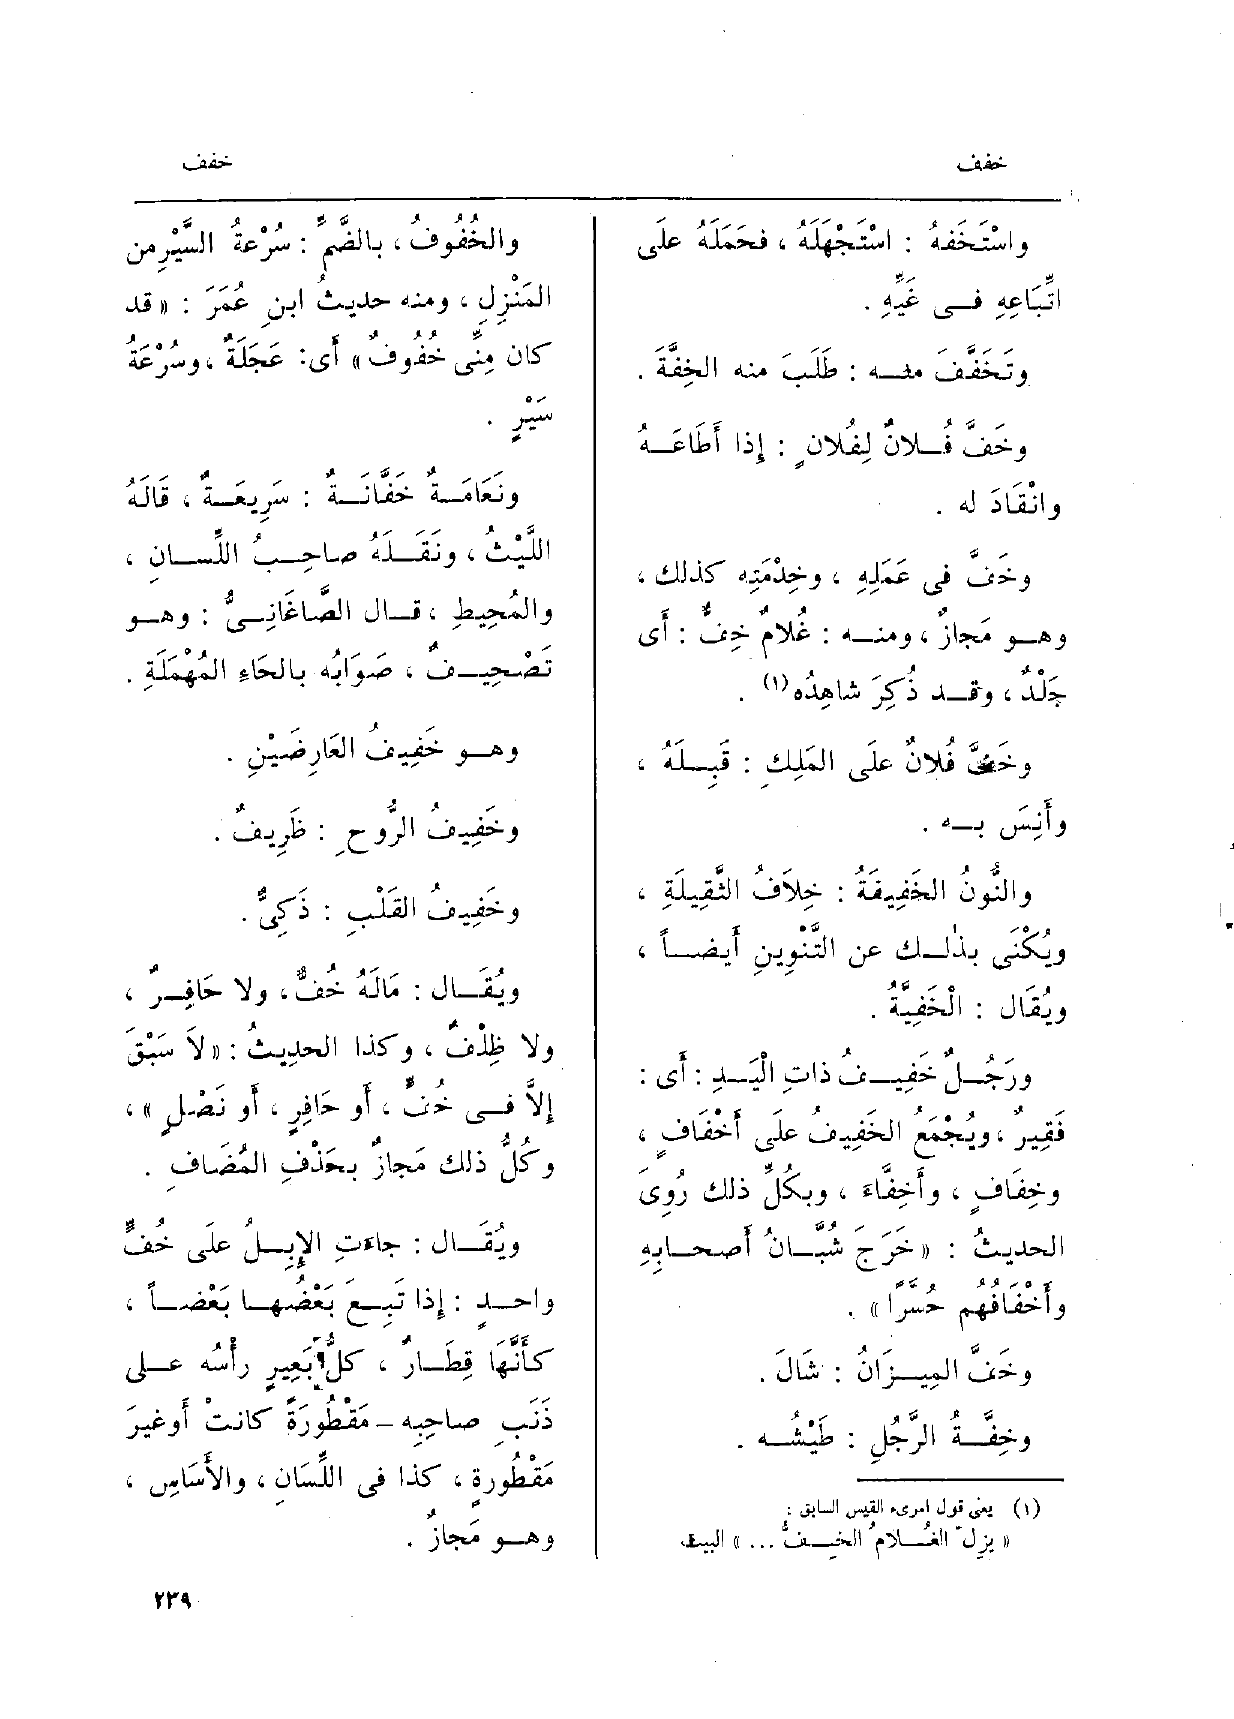 خفف
خفف
واسْتَخَفَهُ : اسْتَجْهَلَهُ ، فحَمَلَهُ علَى
اتِّبَاعِهِ فـى غَيِّهِ .
وتَخَفَّفَ منـه : طَلَبَ منه الخِفَّةَ .
وخَفَّ فُـلانٌ لِفُلانٍ : إِذا أَطَاعَـهُ
وانْقَادَ له .
وخَفَّ فى عَمَلِهِ ، وخِدْمَتِه كذلك ،
وهـو مَجازٌ ، ومنـه : غُلامٌ خِفٌّ : أَى
جَلْدٌ ، وقـد ذُكِرَ شاهِدُه (١) .
وخَفَّ فُلانٌ علَى المَلِكِ : قَبِـلَهُ ،
وأَنِسَ بـه .
والنُّونُ الخَفِيفَةُ : خِلافُ الثَّقِيلَةِ ،
ويُكْنَى بذٰلـك عن التَّنْوِينِ أَيضـاً ،
ويُقَال : الْخَفِيَّةُ .
ورَجُـلٌ خَفِيـفُ ذاتِ الْيَـدِ : أَى :
فَقِيرٌ ، ويُجْمَع الخَفِيفُ علَى أَخْفَافٍ ،
وخِفَافٍ ، وأَخِفَّاءَ ، وبكُلِّ ذلك رُوِىَ
الحديثُ : « خَرَجَ شُبَّـانُ أَصحـابِهِ
وأَخْفَافُهم حُسَّرًا » .
وخَفَّ المِيـزَانُ : شَالَ .
وخِفَّـةُ الرَّجُلِ : طَيْشُـه .
(١) يعنى قول امرىء القيس السابق :
« يزل الغُـلامُ الخِـفُّ ... » البيت
والخُفُوفُ ، بالضَّمِّ : سُرْعةُ السَّيْرِ من
المَنْزِلِ ، ومنه حديثُ ابنِ عُمَرَ : « قد
كان مِنِّى خُفُوفٌ » أَى: عَجَلَةٌ ، وسُرْعَةُ
سَيْرٍ .
ونَعَامَـةٌ خَفَّانَـةٌ : سَرِيعَـةٌ ، قَالَهُ
اللَّيْثُ ، ونَقَـلَهُ صاحِـبُ اللِّسـانِ ،
والمُحِيطِ ، قـال الصَّاغَانِـىُّ : وهـو
تَصْحِيـفٌ ، صَوَابُه بالحَاءِ المُهْمَلَةِ .
وهـو خَفِيفُ العَارِضَيْنِ .
وخَفِيفُ الرُّوحِ : ظَرِيفٌ .
وخَفِيفُ القَلْبِ : ذَكِىٌّ .
ويُقَـال : مَالَهُ خُفٌّ، ولا حَافِـرٌ ،
ولا ظِلْفٌ ، وكذا الحديثُ : « لاَ سَبْقَ
إِلاَّ فـى خُفٍّ ، أَو حَافِرٍ ، أَو نَصْلٍ » ،
وكُلُّ ذلك مَجازٌ بحَذْفِ المُضَافِ .
ويُقَـال : جاءَتِ الإِبِـلُ علَى خُفٍّ
واحـدٍ : إِذا تَبِـعَ بَعْضُهـا بَعْضـاً ،
كأَنَّهَا قِطَـارٌ ، كلُّ بَعِيرٍ رأْسُه عـلى
ذَنَبِ صاحِبِه – مَقْطُورَةً كانتْ أَوغيرَ
مَقْطُورةٍ ، كذا فى اللِّسَانِ ، والأَسَاسِ ،
وهـو مَجازٌ .
٢٣٩